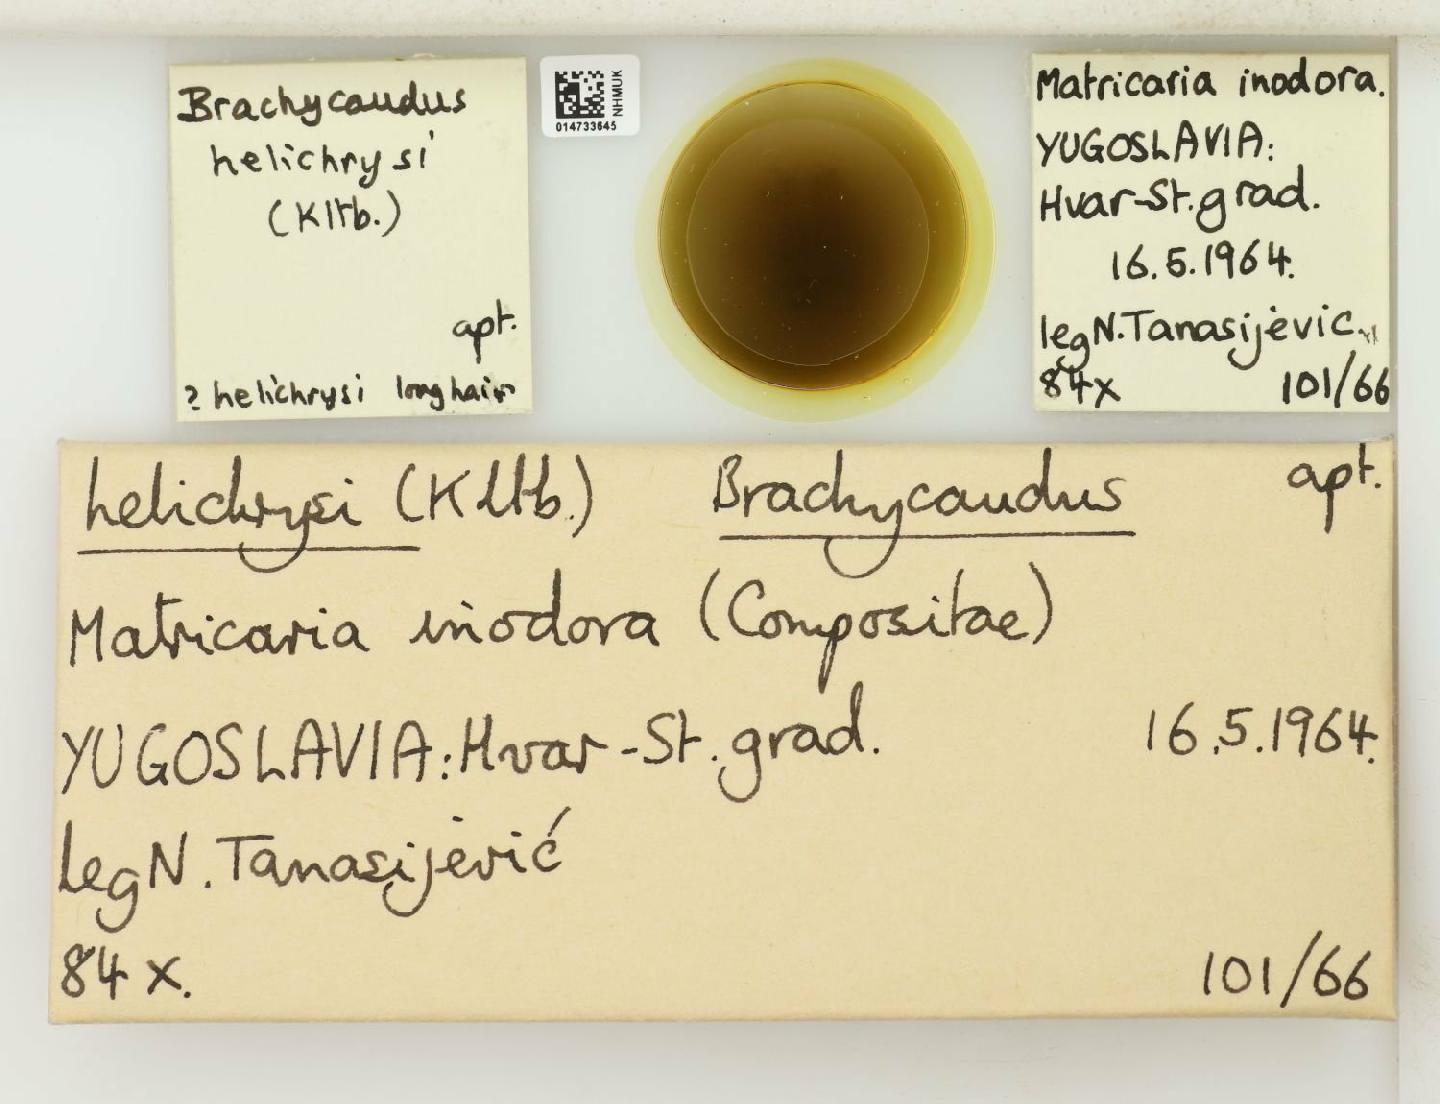 Brachycaudus
helichrysi
(Kltb.)
apt.
? helichrysi long hair
NHMUK
014733645
Matricaria inodora.
YUGOSLAVIA:
Hvar-St.grad.
16.5.1964.
leg N. Tanasijević
84x 101/66
helichrysi (Kltb.) Brachycaudus apt.
Matricaria inodora (Compositae)
YUGOSLAVIA: Hvar-St.grad. 16.5.1964.
leg N. Tanasijević
84 x. 101/66